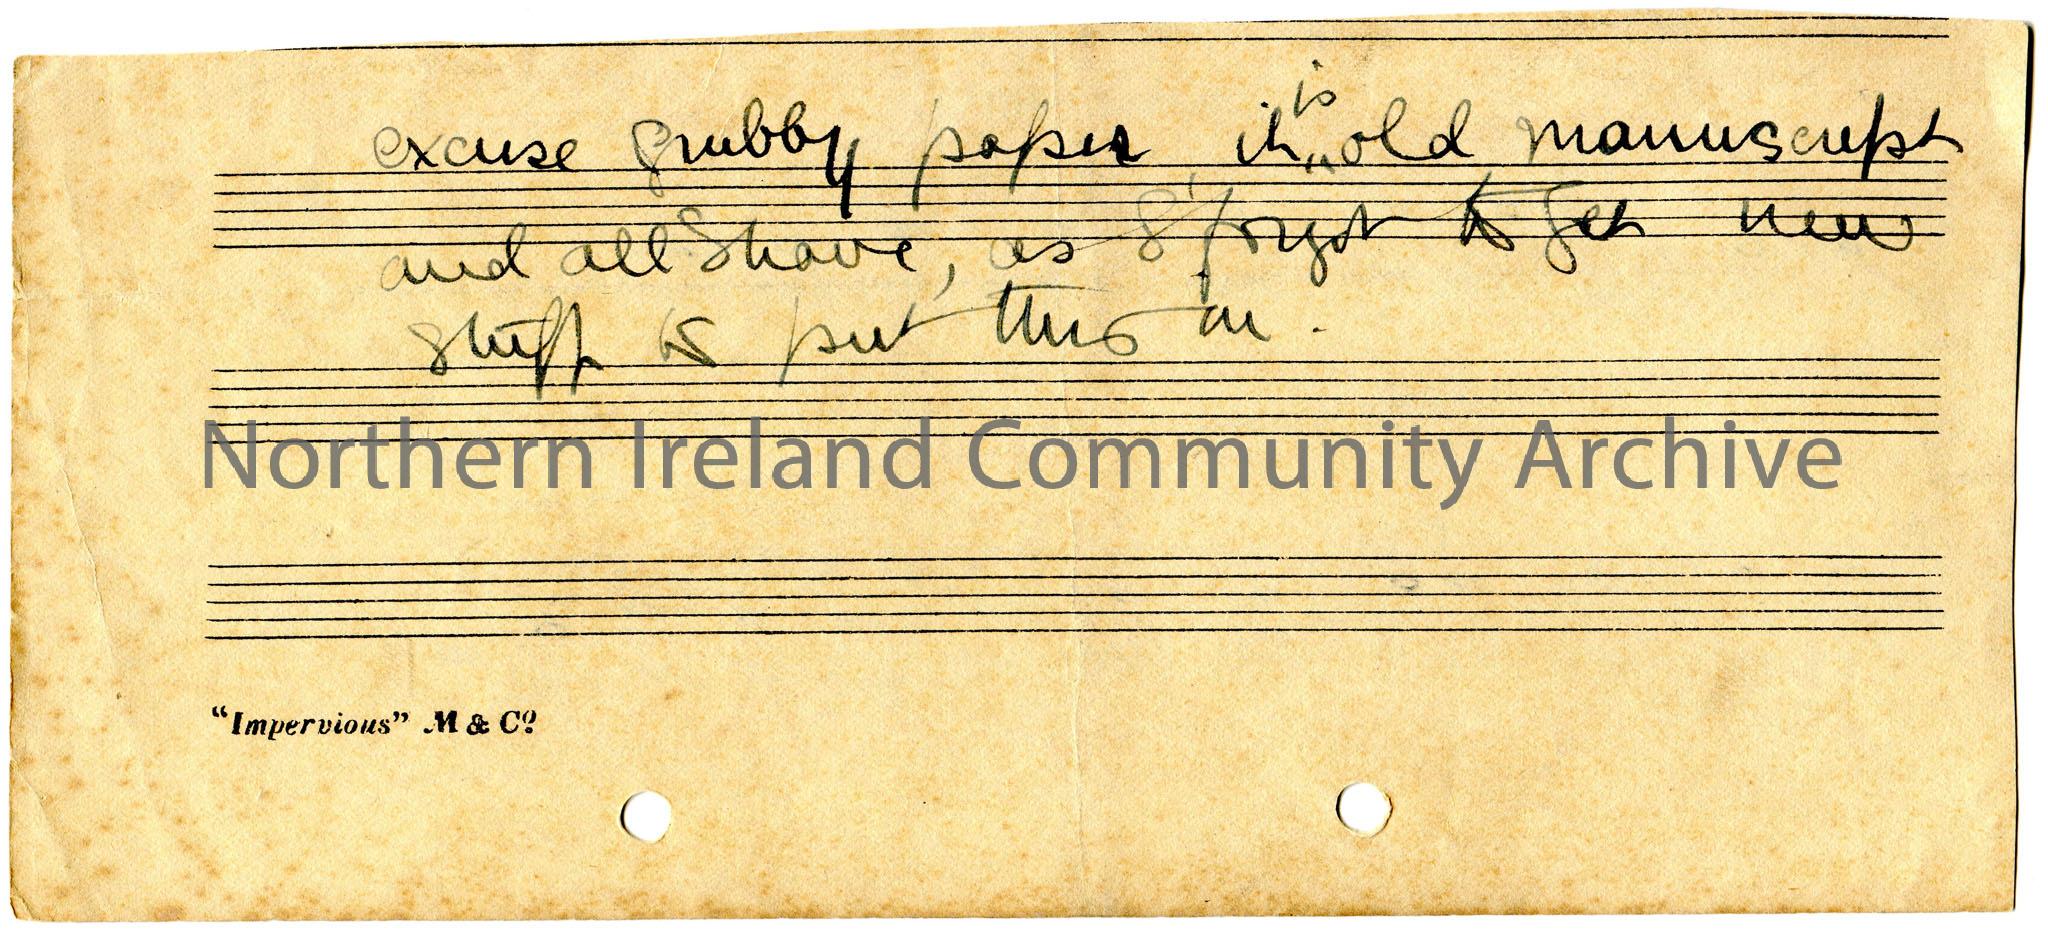 excuse grubby paper it is old manuscript
and all I have, as I forgot to get new
stuff to put this on.
Northern Ireland Community Archive
"Impervious" M & Co.